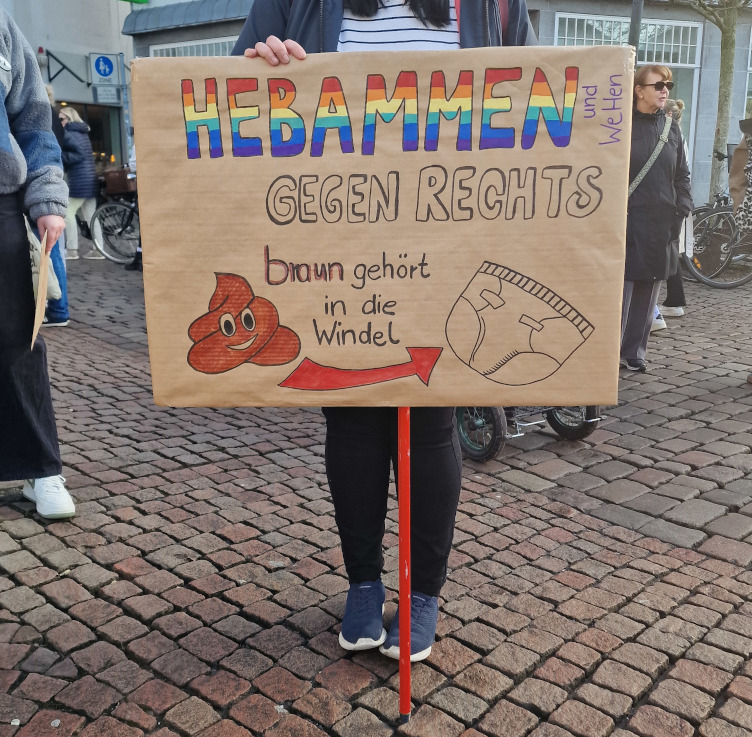 HEBAMMEN
und
WeHen
GEGEN RECHTS
braun gehört
in die
Windel
ZONE